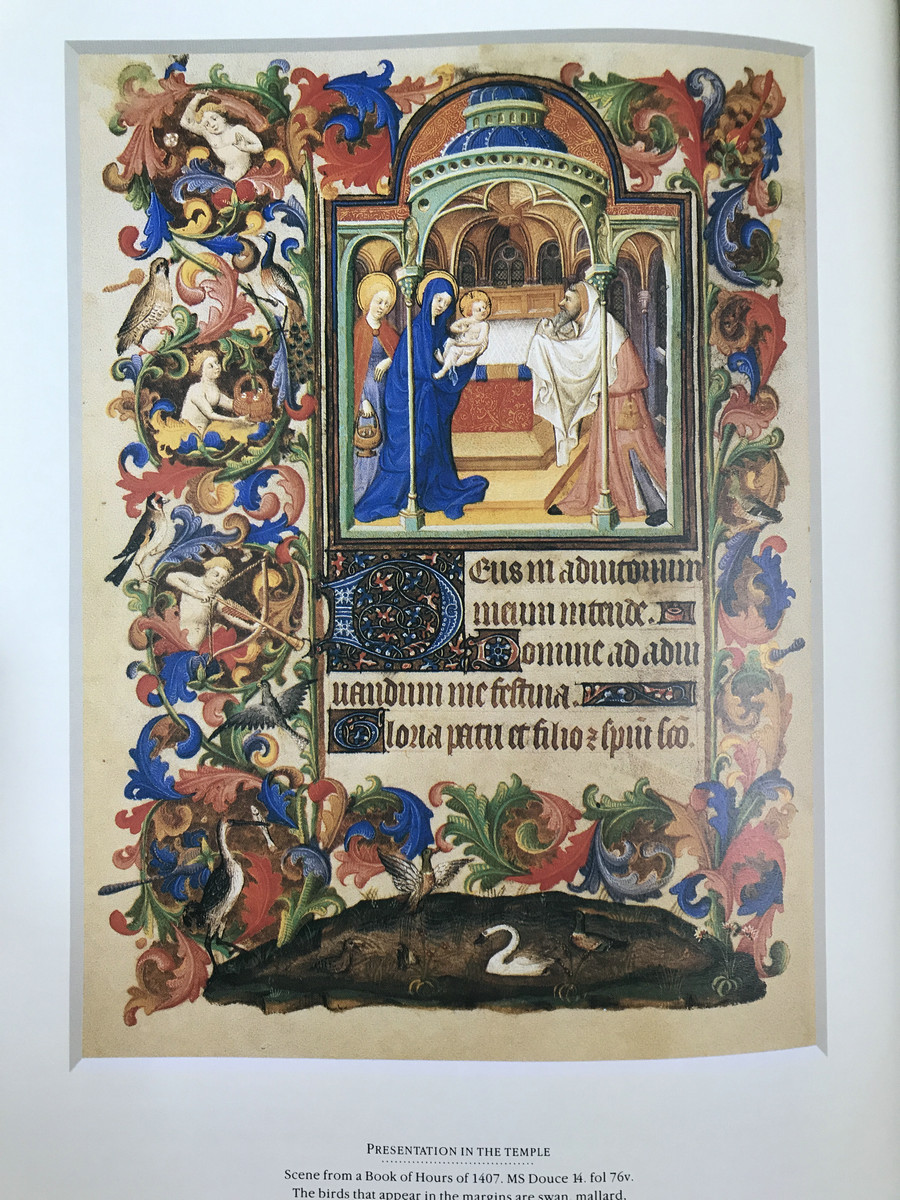 Deus in adiutorium
meum intende.
Domine ad adiu
uandum me festina.
Gloria patri et filio ⁊ spiũ scõ.
PRESENTATION IN THE TEMPLE
Scene from a Book of Hours of 1407. MS Douce 14. fol 76v.
The birds that appear in the margins are swan, mallard,